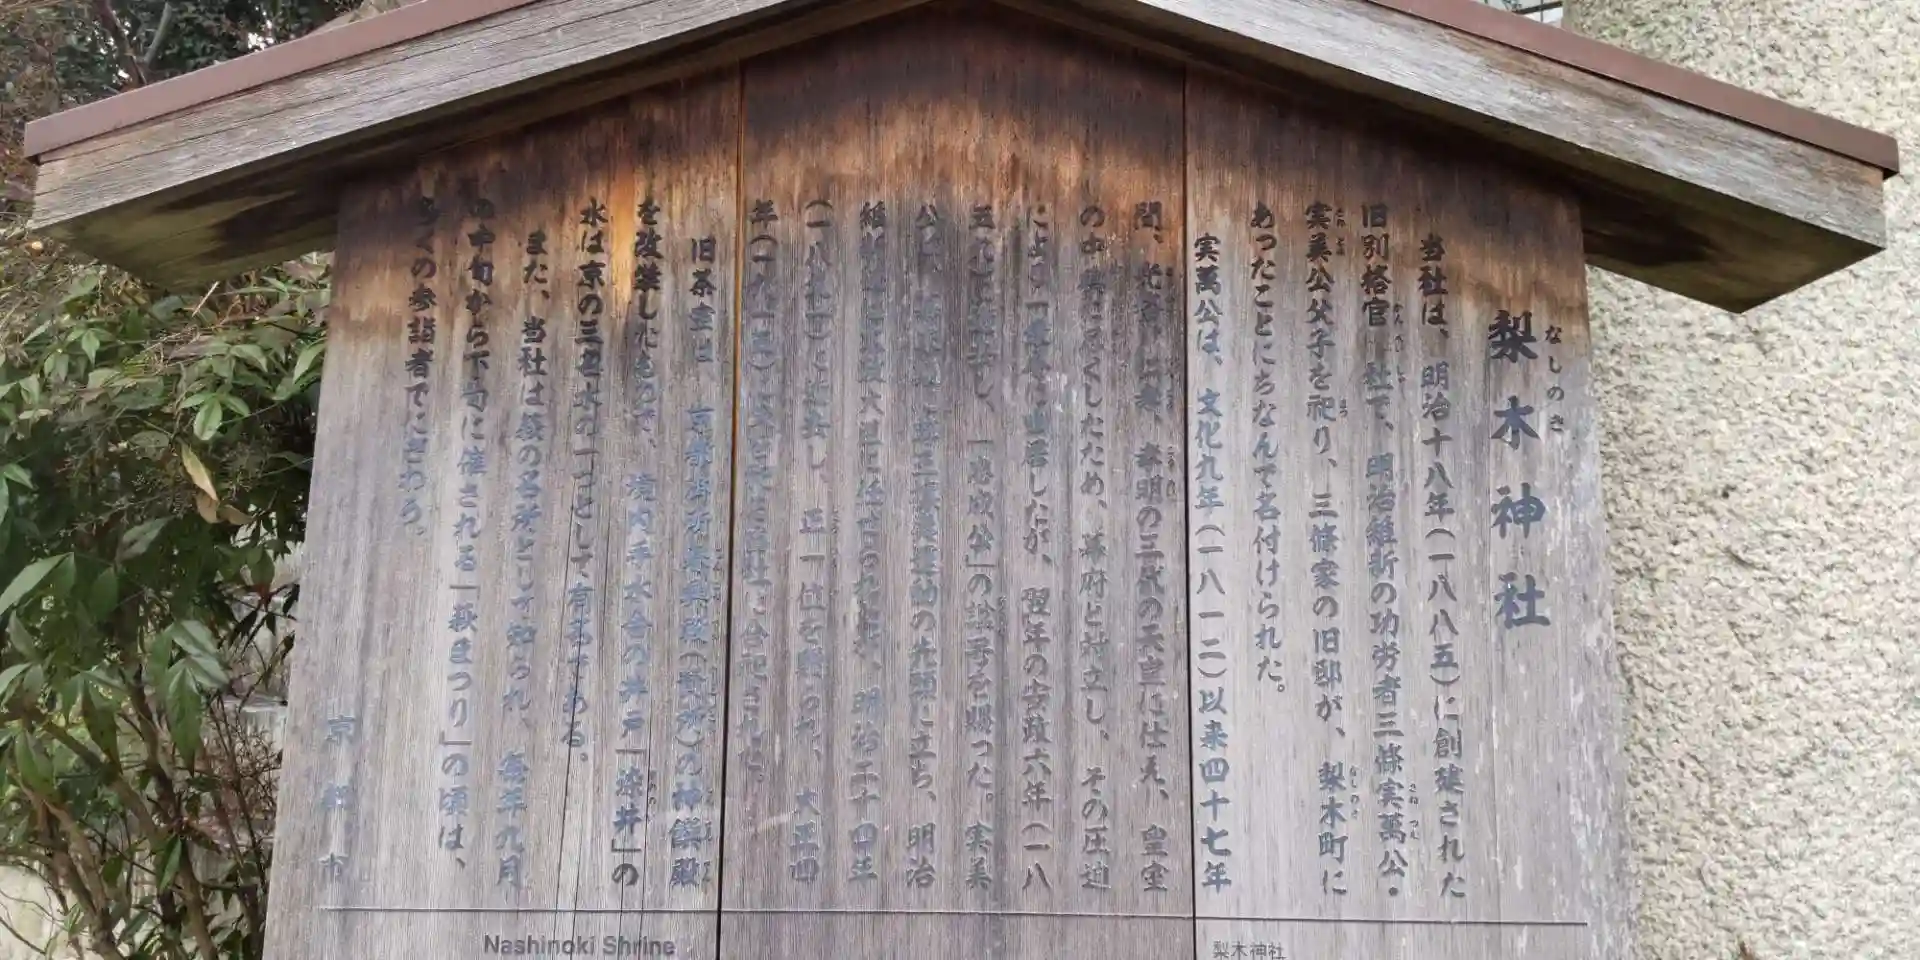 梨木神社
なしのき
当社は、明治十八年(一八八五)に創建された
旧別格官 社で、明治維新の功労者三條実萬公・
さねつむ
実美公父子を祀り、三條家の旧邸が、梨木町に
さねとみ
まつ
なしのき
あったことにちなんで名付けられた。
実萬公は、文化九年(一八一二)以来四十七年
間、光格、仁孝、孝明の三代の天皇に仕え、皇室
の中興に尽くしたため、幕府と対立し、その圧迫
により一乗寺に幽居したが、翌年の安政六年(一八
五九)に し、「忠成公」の諡号を賜った。実美
公は、 の先頭に立ち、明治
維新 大臣に任ぜられたが、明治二十四年
(一八九一)に 去し、正一位を贈られ、大正四
年(一九一五) に当社に合祀された。
旧茶室は、京都御所 (御所)の神饌殿
を改装したもので、境内手水舎の井戸「染井」の
水は京の三名水の一つとして、有名である。
また、当社は萩の名所として知られ、毎年九月
の中旬から下旬に催される「萩まつり」の頃は、
多くの参詣者でにぎわう。
京都市
Nashinoki Shrine
梨木神社